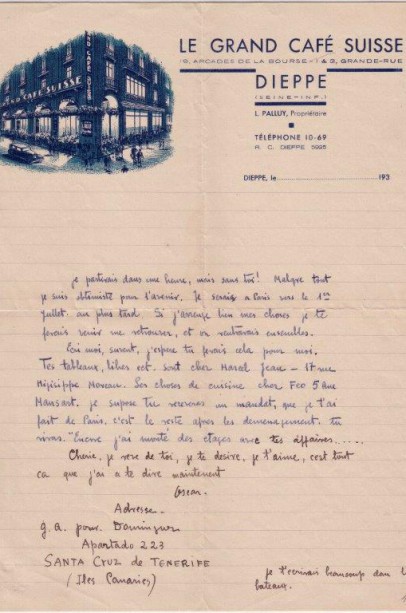 LE GRAND CAFÉ SUISSE
19, ARCADES DE LA BOURSE - 1 & 3, GRANDE-RUE
DIEPPE
(SEINE-INF.)
L. PALLUY, Propriétaire
TÉLÉPHONE 10-69
R. C. DIEPPE 5925
DIEPPE, le 193
GRAND CAFÉ SUISSE
je partirais dans une heure, mais sans toi! Malgré tout
je suis obtimiste pour l'avenir. Je serais a Paris vers le 1er
Juillet, au plus tard. Si j'arrenge bien mes choses je te
ferais venir me retrouver, et on rentrerais ensembles.
Ecri moi, suvent, j'espere tu ferais cela pour moi.
Tes tableaux, libres ect. sont chez Marcel Jean — 17 rue
Hégésippe Moreau. Les choses de cuisine chez Fco 5 Rue
Mansart. je supose tu receveras un mandat, que je t'ai
fait de Paris. c'est le reste apres les demenagement. tu
riras. Encore j'ai monté des etages avec tes affaires.....
Cherie, je reve de toi, je te desire, je t'aime, c'est tout
ca que j'ai a te dire maintenent
Oscar.
Adresse.
g.a. pour Dominguez
Apartado 223
SANTA CRUZ DE TENERIFE
(Iles Canaries)
je t'ecrirais beaucoup dans l
bateau.